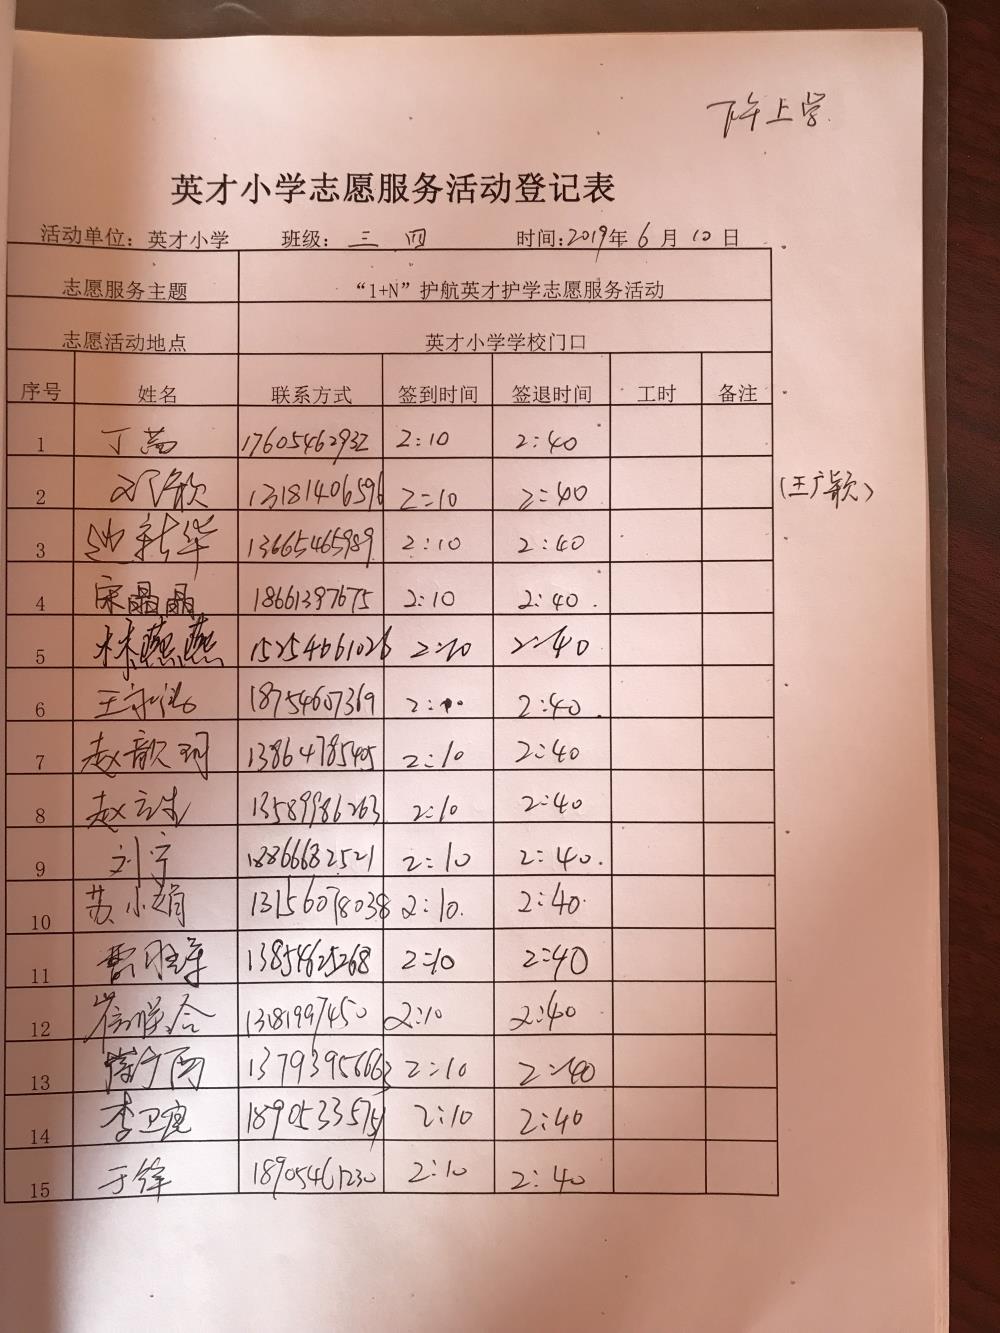 下午上学
英才小学志愿服务活动登记表
活动单位：英才小学 班级：三 四 时间：2019年6月10日
志愿服务主题 “1+N”护航英才护学志愿服务活动
志愿活动地点 英才小学学校门口
序号 姓名 联系方式 签到时间 签退时间 工时 备注
1 丁 17605462932 2:10 2:40
2 13181406596 2:10 2:40 (王广颖)
3 新华 13665465989 2:10 2:40
4 宋晶晶 18661397675 2:10 2:40
5 林燕燕 15254661026 2:10 2:40
6 王 18754607369 2:10 2:40
7 赵歆珂 13864785405 2:10 2:40
8 赵 13589986263 2:10 2:40
9 刘宁 18866682521 2:10 2:40
10 苏小娟 13156078038 2:10 2:40
11 曹胜军 13854625268 2:10 2:40
12 崔联合 13181997450 2:10 2:40
13 13793956663 2:10 2:40
14 李卫 1890533575 2:10 2:40
15 于锋 18905461230 2:10 2:40